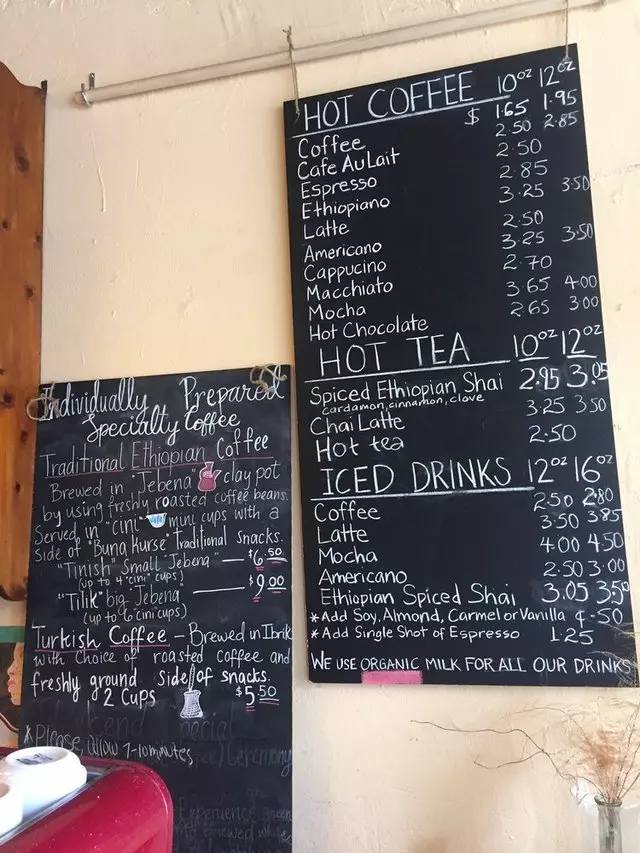 HOT COFFEE 10oz 12oz
Coffee $ 1.65 1.95
Cafe AuLait 2.50 2.85
Espresso 2.50
Ethiopiano 2.85
Latte 3.25 3.50
Americano 2.50
Cappucino 3.25 3.50
Macchiato 2.70
Mocha 3.65 4.00
Hot Chocolate 2.65 3.00
HOT TEA 10oz 12oz
Spiced Ethiopian Shai 2.95 3.05
cardamon, cinnamon, clove
Chai Latte 3.25 3.50
Hot tea 2.50
ICED DRINKS 12oz 16oz
Coffee 2.50 2.80
Latte 3.50 3.85
Mocha 4.00 4.50
Americano 2.50 3.00
Ethiopian Spiced Shai 3.05 3.50
*Add Soy, Almond, Carmel or Vanilla ¢.50
*Add Single Shot of Espresso 1.25
WE USE ORGANIC MILK FOR ALL OUR DRINKS
Individually Prepared
Specialty Coffee
Traditional Ethiopian Coffee
Brewed in "Jebena" clay pot
by using freshly roasted coffee beans.
Served in "cini" mini cups with a
side of "Bung Kurse" traditional snacks.
"Tinish" Small Jebena — $6.50
(up to 4 "cini" cups)
"Tilik" big Jebena — $9.00
(up to 6 cini cups)
Turkish Coffee – Brewed in Ibrik
with choice of roasted coffee and
freshly ground side of snacks.
2 Cups $5.50
*Please, allow 7-10minutes
Ceremony
Experience
brewed while